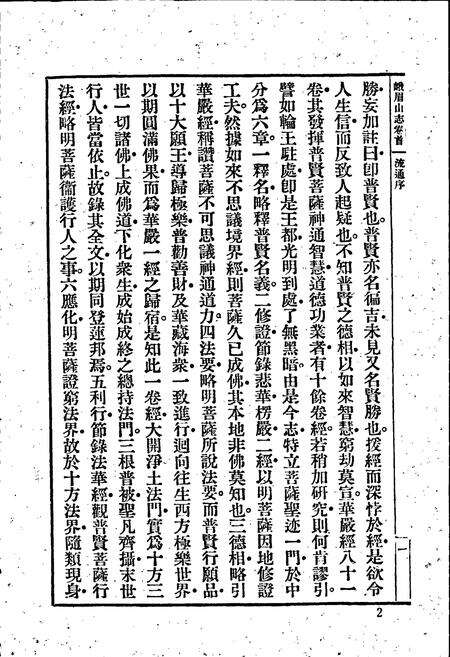 峨眉山志卷首 流通序
勝妄加註曰卽普賢也普賢亦名徧吉未見又名賢勝也援經而深悖於經是欲令
人生信而反致人起疑也不知普賢之德相以如來智慧窮劫莫宣華嚴經八十一
卷其發揮普賢菩薩神通智慧道德功業者有十餘卷經若稍加研究則何肯謬引
譬如輪王駐處卽是王都光明到處了無黑暗由是今志特立菩薩聖迹一門於中
分爲六章一釋名略釋普賢名義二修證節錄悲華楞嚴二經以明菩薩因地修證
工夫然據如來不思議境界經則菩薩久已成佛其本地非佛莫知也三德相略引
華嚴經稱讚菩薩不可思議神通道力四法要略明菩薩所說法要而普賢行願品
以十大願王導歸極樂普勸善財及華藏海衆一致進行迴向往生西方極樂世界
以期圓滿佛果而爲華嚴一經之歸宿是知此一卷經大開淨土法門實爲十方三
世一切諸佛上成佛道下化衆生成始成終之總持法門三根普被聖凡齊攝末世
行人皆當依止故錄其全文以期同登蓮邦焉五利行節錄法華經觀普賢菩薩行
法經略明菩薩衞護行人之事六應化明菩薩證窮法界故於十方法界隨類現身
一
2